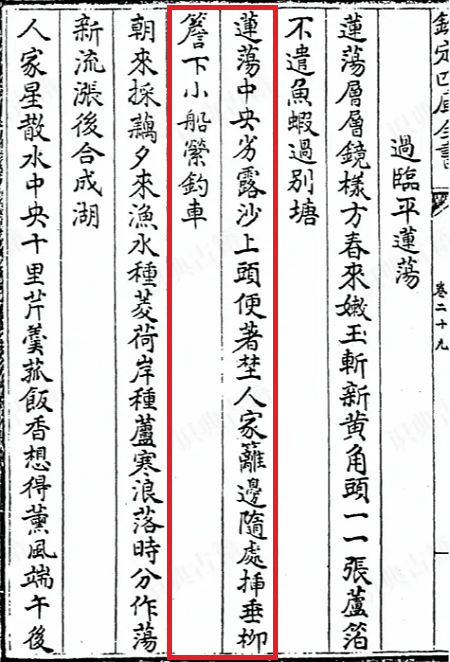 欽定四庫全書 卷二十九
過臨平蓮蕩
蓮蕩層層鏡樣方春來嫩玉斬新黃角頭一一張蘆箔
不遣魚蝦過別塘
蓮蕩中央劣露沙上頭便著埜人家籬邊隨處挿垂柳
簷下小船縈釣車
朝來採藕夕來漁水種菱荷岸種蘆寒浪落時分作蕩
新流漲後合成湖
人家星散水中央十里芹羹菰飯香想得薰風端午後